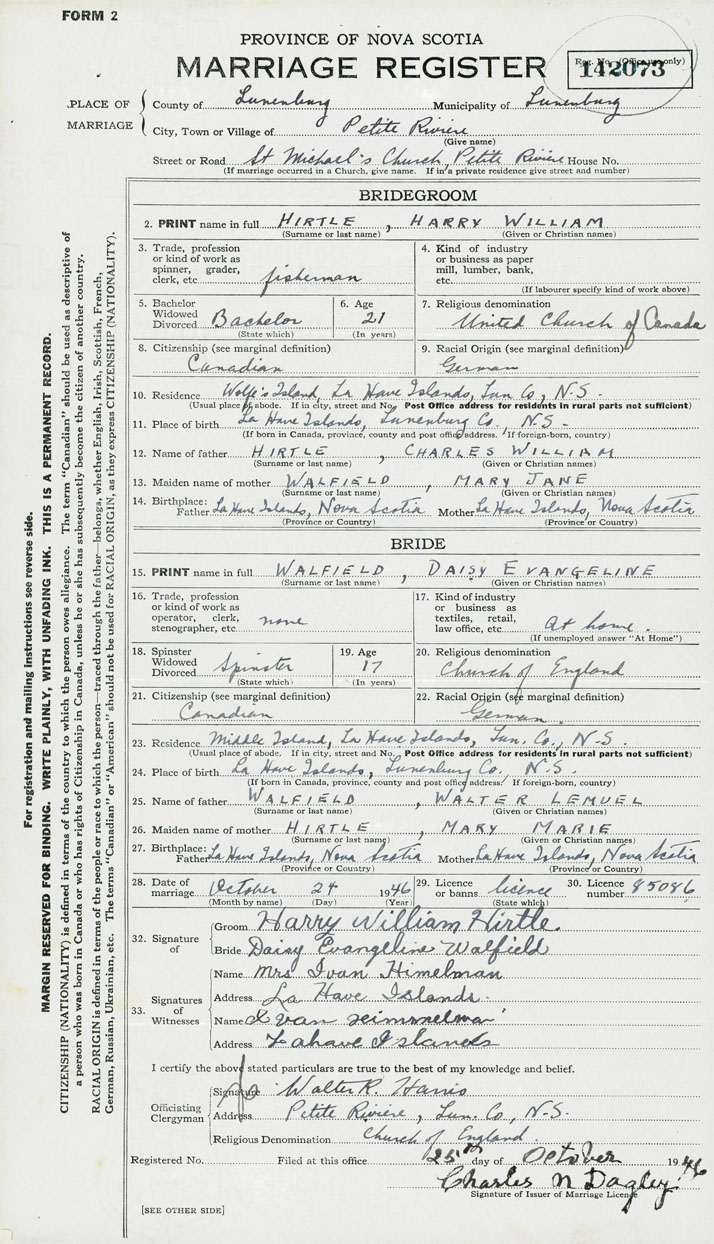 FORM 2
PROVINCE OF NOVA SCOTIA
MARRIAGE REGISTER
Reg. No. (Office use only)
142073
PLACE OF MARRIAGE
County of Lunenburg Municipality of Lunenburg
City, Town or Village of Petite Riviere
(Give name)
Street or Road St Michael's Church, Petite Riviere House No.
(If marriage occurred in a Church, give name. If in a private residence give street and number)
BRIDEGROOM
2. PRINT name in full HIRTLE, HARRY WILLIAM
(Surname or last name) (Given or Christian names)
3. Trade, profession or kind of work as spinner, grader, clerk, etc. fisherman
4. Kind of industry or business as paper mill, lumber, bank, etc.
(If labourer specify kind of work above)
5. Bachelor Widowed Divorced Bachelor
(State which)
6. Age 21
(In years)
7. Religious denomination
United Church of Canada
8. Citizenship (see marginal definition)
Canadian
9. Racial Origin (see marginal definition)
German
10. Residence Wolfe's Island, La Have Islands, Lun Co, N.S.
(Usual place of abode. If in city, street and No. Post Office address for residents in rural parts not sufficient)
11. Place of birth La Have Islands, Lunenburg Co., N.S.
(If born in Canada, province, county and post office address. If foreign-born, country)
12. Name of father HIRTLE, CHARLES WILLIAM
(Surname or last name) (Given or Christian names)
13. Maiden name of mother WALFIELD, MARY JANE
(Surname or last name) (Given or Christian names)
14. Birthplace: Father La Have Islands, Nova Scotia Mother La Have Islands, Nova Scotia
(Province or Country) (Province or Country)
BRIDE
15. PRINT name in full WALFIELD, DAISY EVANGELINE
(Surname or last name) (Given or Christian names)
16. Trade, profession or kind of work as operator, clerk, stenographer, etc. none
17. Kind of industry or business as textiles, retail, law office, etc. At home.
(If unemployed answer "At Home")
18. Spinster Widowed Divorced Spinster
(State which)
19. Age 17
(In years)
20. Religious denomination
Church of England
21. Citizenship (see marginal definition)
Canadian
22. Racial Origin (see marginal definition)
German.
23. Residence Middle Island, La Have Islands, Lun. Co., N.S.
(Usual place of abode. If in city, street and No. Post Office address for residents in rural parts not sufficient)
24. Place of birth La Have Islands, Lunenburg Co., N.S.
(If born in Canada, province, county and post office address. If foreign-born, country)
25. Name of father WALFIELD, WALTER LEMUEL
(Surname or last name) (Given or Christian names)
26. Maiden name of mother HIRTLE, MARY MARIE
(Surname or last name) (Given or Christian names)
27. Birthplace: Father La Have Islands, Nova Scotia Mother La Have Islands, Nova Scotia
(Province or Country) (Province or Country)
28. Date of marriage October 24 1946 29. Licence or banns licence 30. Licence number 85086
(Month by name) (Day) (Year) (State which)
32. Signature of
Groom Harry William Hirtle.
Bride Daisy Evangeline Walfield
33. Signatures of Witnesses
Name Mrs Ivan Himelman
Address La Have Islands.
Name Ivan
Address Lahave Islands
I certify the above stated particulars are true to the best of my knowledge and belief.
Officiating Clergyman
Signature Walter R. Harris
Address Petite Riviere, Lun. Co., N.S.
Religious Denomination Church of England.
Registered No. Filed at this office 25th day of October 1946
Charles N Dagley
Signature of Issuer of Marriage Licence
[SEE OTHER SIDE]
For registration and mailing instructions see reverse side.
MARGIN RESERVED FOR BINDING. WRITE PLAINLY, WITH UNFADING INK. THIS IS A PERMANENT RECORD.
CITIZENSHIP (NATIONALITY) is defined in terms of the country to which the person owes allegiance. The term "Canadian" should be used as descriptive of
a person who was born in Canada or who has rights of Citizenship in Canada, unless he or she has subsequently become the citizen of another country.
RACIAL ORIGIN is defined in terms of the people or race to which the person—traced through the father—belongs, whether English, Irish, Scottish, French,
German, Russian, Ukrainian, etc. The terms "Canadian" or "American" should not be used for RACIAL ORIGIN, as they express CITIZENSHIP (NATIONALITY).